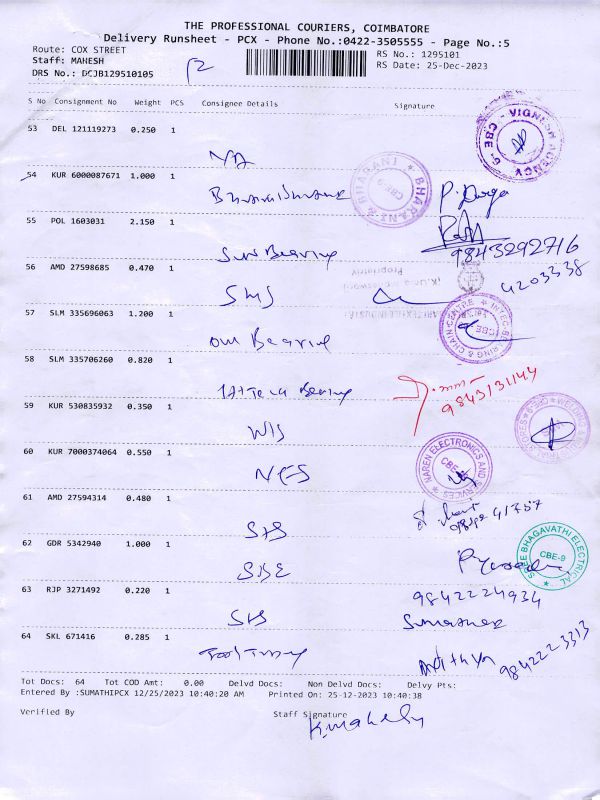 THE PROFESSIONAL COURIERS, COIMBATORE
Delivery Runsheet - PCX - Phone No.:0422-3505555 - Page No.:5
Route: COX STREET
RS No.: 1295101
Staff: MAHESH
RS Date: 25-Dec-2023
DRS No.: DCJB129510105
S No Consignment No Weight PCS Consignee Details Signature
53 DEL 121119273 0.250 1
VIGNESH AGENCY CBE-9
NA
54 KUR 6000087671 1.000 1
BHARANI BHARANI CBE-9
P. Durga
55 POL 1603031 2.150 1
Sun Bearing
9843292716
56 AMD 27598685 0.470 1
Propriatry
SMS
4203338
57 SLM 335696063 1.200 1
INTEC BEARING & CHAIN CENTRE CBE
Om Bearing
58 SLM 335706260 0.820 1
Inteca Bearing
9843131144
59 KUR 530835932 0.350 1
WIS
60 KUR 7000374064 0.550 1
NAREN ELECTRONICS AND SERVICES CBE
NES
61 AMD 27594314 0.480 1
SAS
62 GDR 5342940 1.000 1
SREE BHAGAVATHI ELECTRICAL CBE-9
SBE
63 RJP 3271492 0.220 1
9842224934
SAS
64 SKL 671416 0.285 1
Adithya 9842223313
Tot Docs: 64 Tot COD Amt: 0.00 Delvd Docs: Non Delvd Docs: Delvy Pts:
Entered By :SUMATHIPCX 12/25/2023 10:40:20 AM Printed On: 25-12-2023 10:40:38
Verified By Staff Signature
K.Mahesh